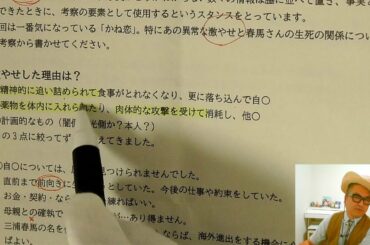 できたときに、考察の要素として使用するというスタンスをとっています。
回は一番気になっている「かね恋」特にあの異常な激やせと春馬さんの生死の関係につい
考察から書かせてください。
やせした理由は？
精神的に追い詰められて食事がとれなくなり、更に落ち込んで自〇
薬物を体内に入れられたり、肉体的な攻撃を受けて消耗し、他〇
計画的なもの（闇側
光側か？本人？）
の３点に絞ってず
えてきました。
自〇については、
見つけられませんでした。
直前まで前向きに
をしていた。今後の仕事や約束をしていた。
お金・契約・
練ればいい。
母親との確執で
あり得ません。
三浦春馬の名を
ならば、海外進出をする機会に
ばよい。